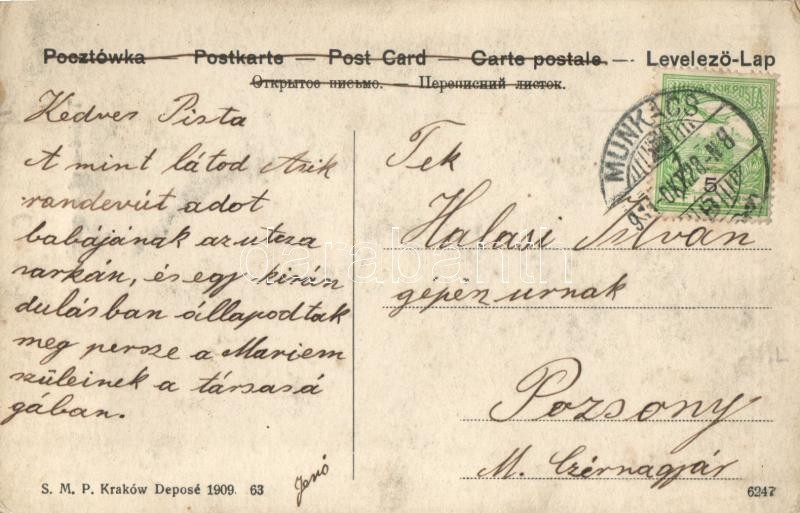 Pocztówka — Postkarte — Post Card — Carte postale. — Levelező-Lap
Открытое письмо. — Переписний листок.
Kedves Pista
A mint látod Azik
randevút adot
babájának az utcza
sarkán, és egy kirán
dulásban állapodtak
meg persze a Mariem
szüleinek a társasá
gában.
Jenő
Tek
Halasi István
gépész urnak
Pozsony
M. Czérnagyár
MUNKÁCS
5
S. M. P. Kraków Deposé 1909. 63
6247
darabanth